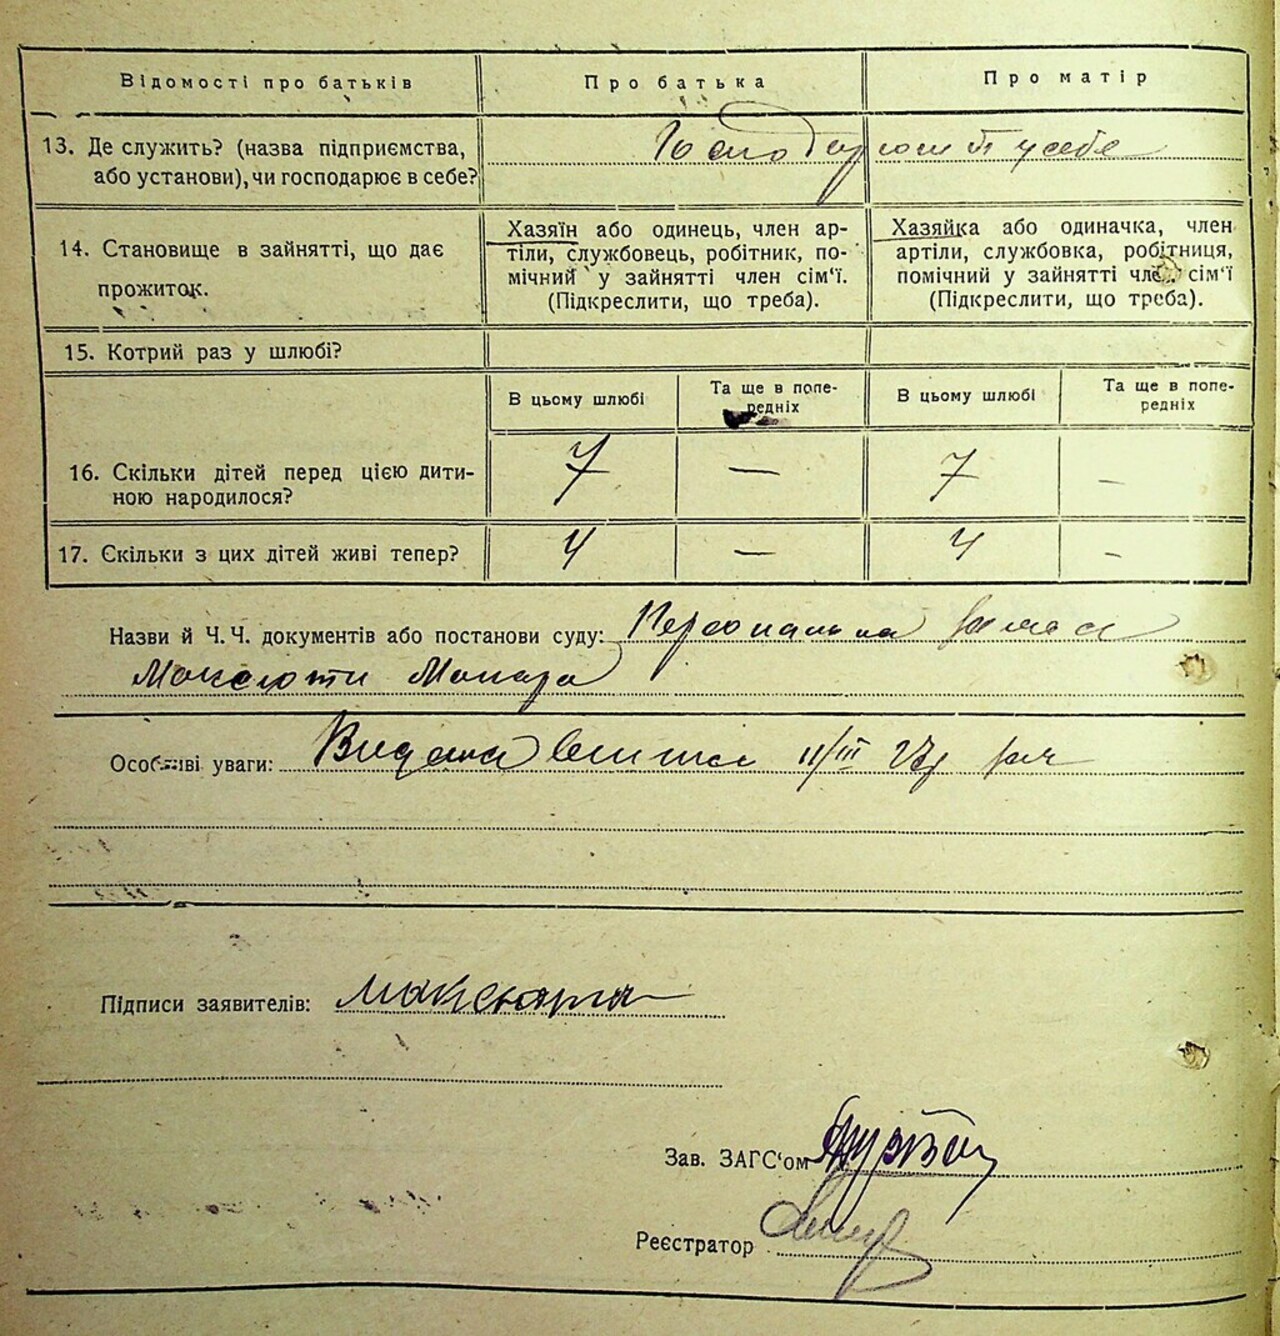 Відомості про батьків
Про батька
Про матір
13. Де служить? (назва підприємства,
або установи), чи господарює в себе?
Господарюють у себе
14. Становище в зайнятті, що дає
прожиток.
Хазяїн або одинець, член ар-
тіли, службовець, робітник, по-
мічний у зайнятті член сім'ї.
(Підкреслити, що треба).
Хазяйка або одиначка, член
артіли, службовка, робітниця,
помічний у зайнятті член сім'ї
(Підкреслити, що треба).
15. Котрий раз у шлюбі?
В цьому шлюбі
Та ще в попе-
редніх
В цьому шлюбі
Та ще в попе-
редніх
16. Скільки дітей перед цією дити-
ною народилося?
7 — 7 —
17. Скільки з цих дітей живі тепер?
4 — 4 —
Назви й Ч.Ч. документів або постанови суду: Персональна
Максюти Макара
Особливі уваги: Видана 11/III 27
Підписи заявителів: Максюта
Зав. ЗАГС'ом
Реєстратор